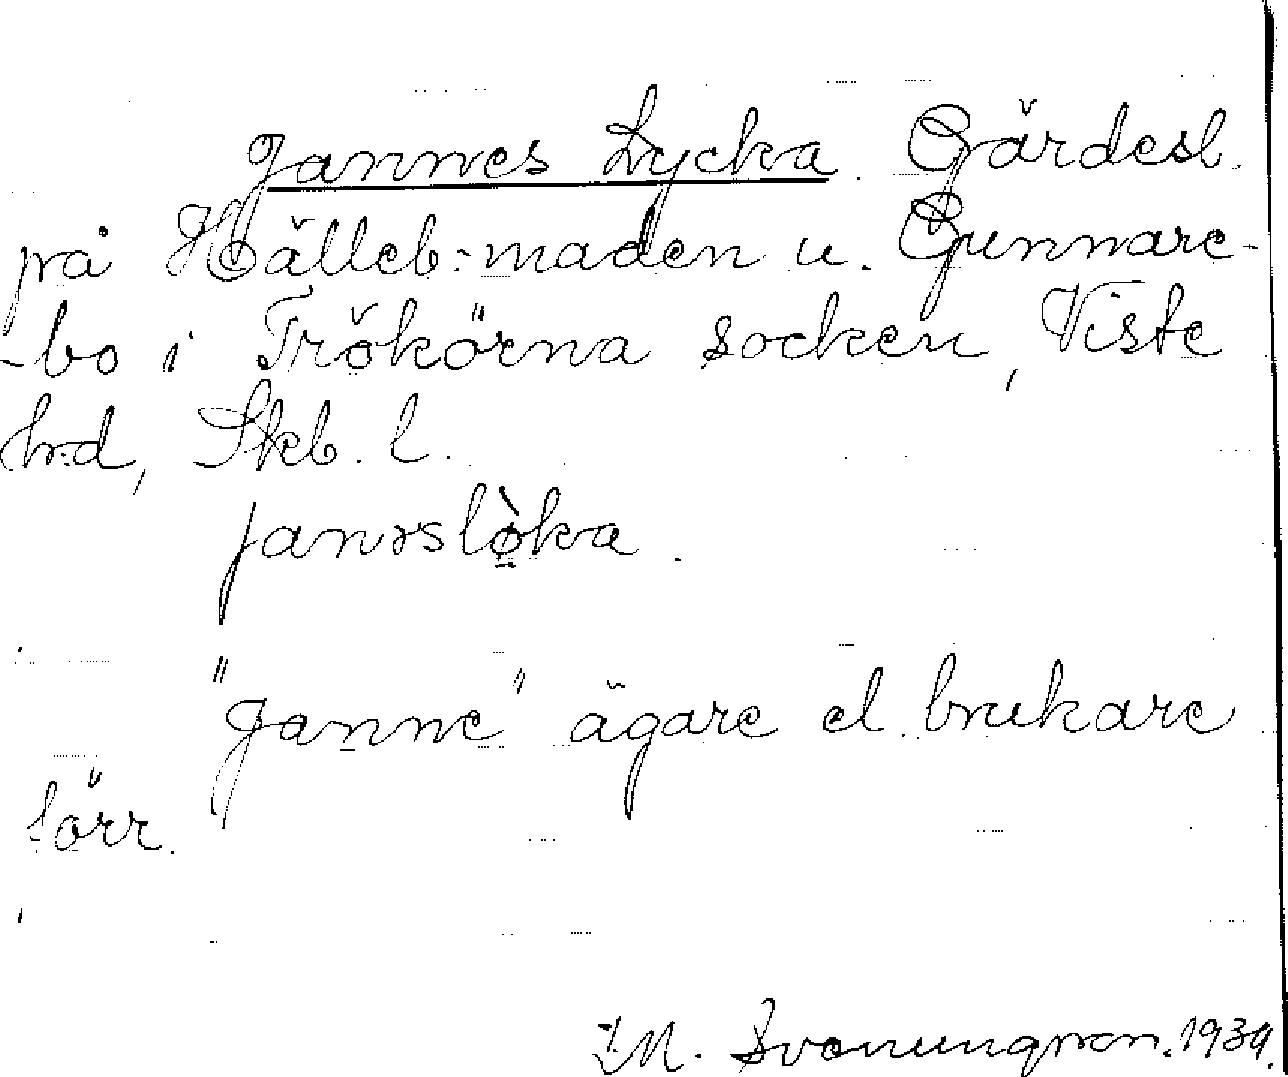 Jannes Lycka. Gärdesl.
på Hälleb:maden u. Gunnare-
-bo i Trökörna socken, Viste
hrd, Skb. l.
jannəslò̱ka.
"Janne" ägare el. brukare
förr.
I.M. Svanungson. 1934.